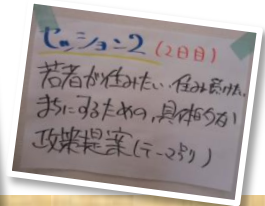 セッション2（2日目）
若者が住みたい、住み続けたい
まちにするための、具体的な
政策提案（テーマ別り）